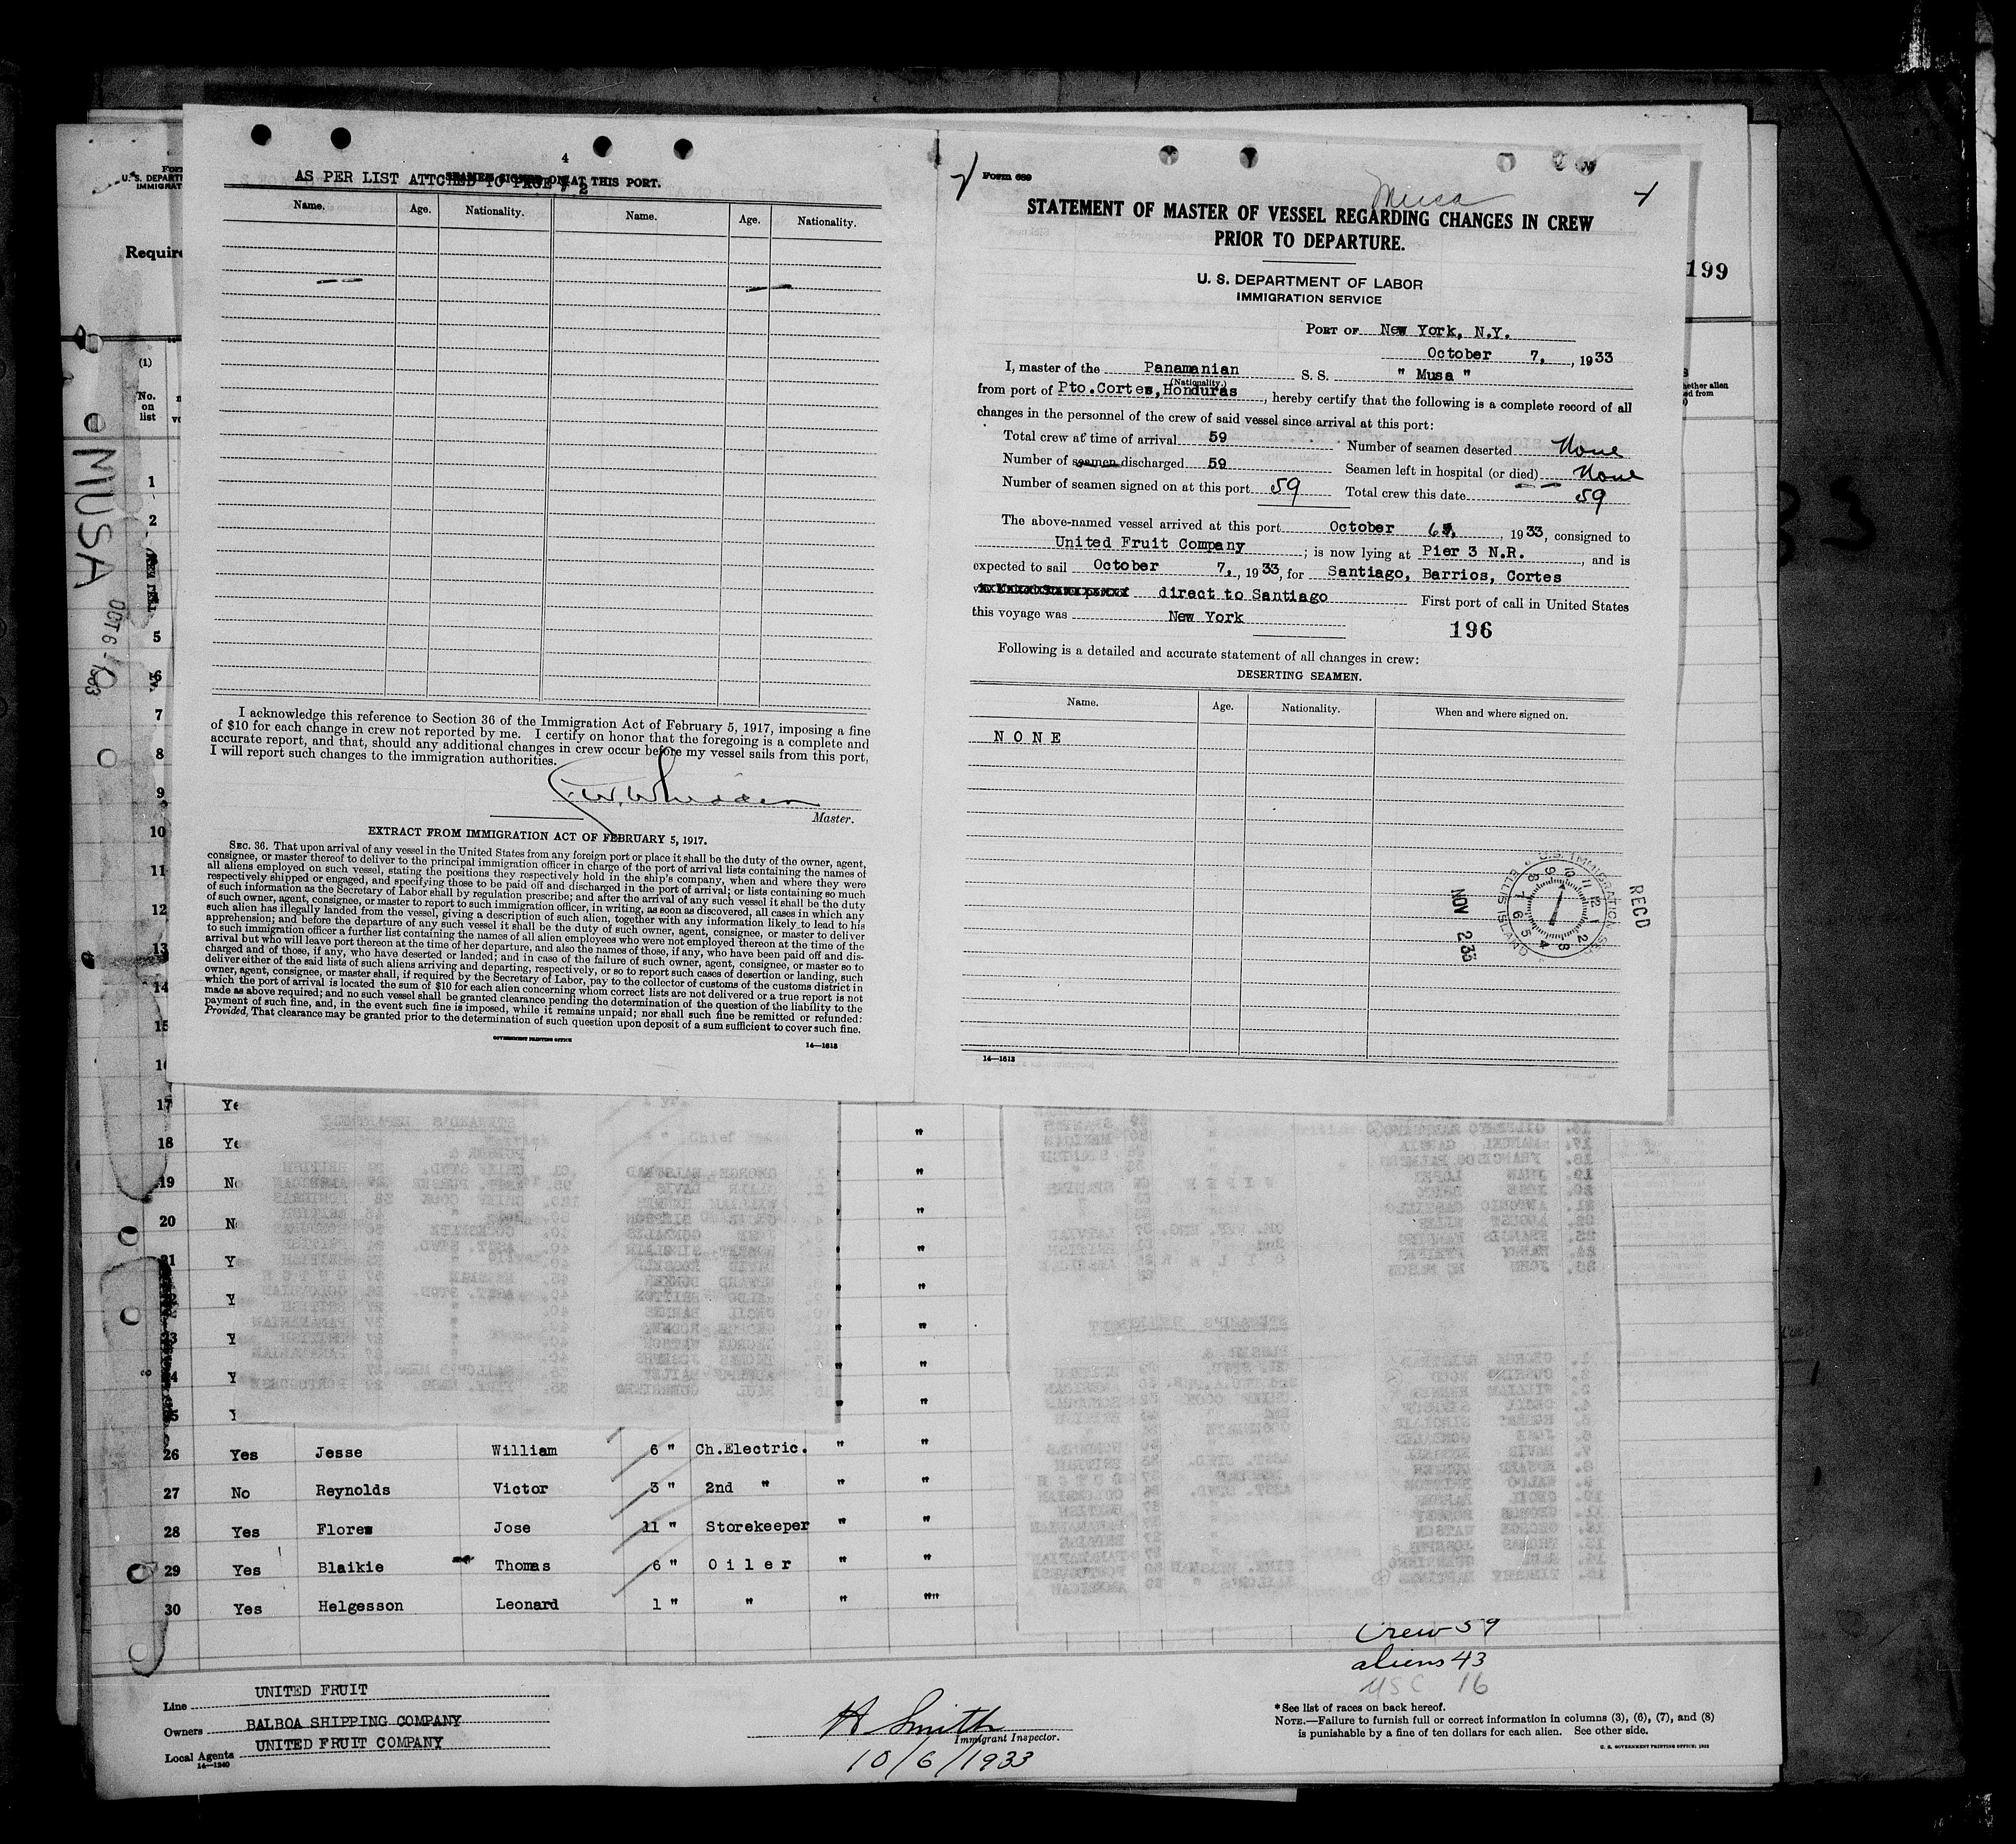 4
AS PER LIST ATTCHED TO PAGE 2
SEAMEN SIGNED ON AT THIS PORT.
Name. Age. Nationality. Name. Age. Nationality.
I acknowledge this reference to Section 36 of the Immigration Act of February 5, 1917, imposing a fine
of $10 for each change in crew not reported by me. I certify on honor that the foregoing is a complete and
accurate report, and that, should any additional changes in crew occur before my vessel sails from this port,
I will report such changes to the immigration authorities.
Master.
EXTRACT FROM IMMIGRATION ACT OF FEBRUARY 5, 1917.
SEC. 36. That upon arrival of any vessel in the United States from any foreign port or place it shall be the duty of the owner, agent,
consignee, or master thereof to deliver to the principal immigration officer in charge of the port of arrival lists containing the names of
all aliens employed on such vessel, stating the positions they respectively hold in the ship's company, when and where they were
respectively shipped or engaged, and specifying those to be paid off and discharged in the port of arrival; or lists containing so much
of such information as the Secretary of Labor shall by regulation prescribe; and after the arrival of any such vessel it shall be the duty
of such owner, agent, consignee, or master to report to such immigration officer, in writing, as soon as discovered, all cases in which any
such alien has illegally landed from the vessel, giving a description of such alien, together with any information likely to lead to his
apprehension; and before the departure of any such vessel it shall be the duty of such owner, agent, consignee, or master to deliver
to such immigration officer a further list containing the names of all alien employees who were not employed thereon at the time of the
arrival but who will leave port thereon at the time of her departure, and also the names of those, if any, who have been paid off and dis-
charged and of those, if any, who have deserted or landed; and in case of the failure of such owner, agent, consignee, or master so to
deliver either of the said lists of such aliens arriving and departing, respectively, or so to report such cases of desertion or landing, such
owner, agent, consignee, or master shall, if required by the Secretary of Labor, pay to the collector of customs of the customs district in
which the port of arrival is located the sum of $10 for each alien concerning whom correct lists are not delivered or a true report is not
made as above required; and no such vessel shall be granted clearance pending the determination of the question of the liability to the
payment of such fine, and, in the event such fine is imposed, while it remains unpaid; nor shall such fine be remitted or refunded:
Provided, That clearance may be granted prior to the determination of such question upon deposit of a sum sufficient to cover such fine.
GOVERNMENT PRINTING OFFICE 14—1613
Form 689
Musa
STATEMENT OF MASTER OF VESSEL REGARDING CHANGES IN CREW
PRIOR TO DEPARTURE.
U. S. DEPARTMENT OF LABOR
IMMIGRATION SERVICE
PORT OF New York, N.Y.
October 7, , 1933
I, master of the Panamanian S. S. " Musa "
(Nationality.)
from port of Pto.Cortes,Honduras, hereby certify that the following is a complete record of all
changes in the personnel of the crew of said vessel since arrival at this port:
Total crew at time of arrival 59 Number of seamen deserted None
Number of seamen discharged 59 Seamen left in hospital (or died) None
Number of seamen signed on at this port 59 Total crew this date 59
The above-named vessel arrived at this port October 6, , 1933, consigned to
United Fruit Company ; is now lying at Pier 3 N.R. , and is
expected to sail October 7, , 1933, for Santiago, Barrios, Cortes
direct to Santiago First port of call in United States
this voyage was New York
196
Following is a detailed and accurate statement of all changes in crew:
DESERTING SEAMEN.
Name. Age. Nationality. When and where signed on.
N O N E
RECD
U.S. IMMIGRATION SER
ELLIS ISLAND
NOV 2 33
14—1613
199
Form
U. S. DEPART
IMMIGRAT
Require
(1)
No.
on
list
MUSA
OCT 6 - 1933
1
2
5
6
7
8
9
10
11
12
13
14
15
16
17 Ye
18 Ye
19 No
20 N
21 Y
Y
Y
Y
26 Yes Jesse William 6 " Ch.Electric. " "
27 No Reynolds Victor 3 " 2nd " " "
28 Yes Flores Jose 11 " Storekeeper " "
29 Yes Blaikie Thomas 6 " O i l e r " "
30 Yes Helgesson Leonard 1 " " " ""
Crew 59
aliens 43
USC 16
Line UNITED FRUIT
Owners BALBOA SHIPPING COMPANY
Local Agents UNITED FRUIT COMPANY
14—1240
H Smith
Immigrant Inspector.
10/6/1933
* See list of races on back hereof.
NOTE.—Failure to furnish full or correct information in columns (3), (6), (7), and (8)
is punishable by a fine of ten dollars for each alien. See other side.
U. S. GOVERNMENT PRINTING OFFICE: 1932